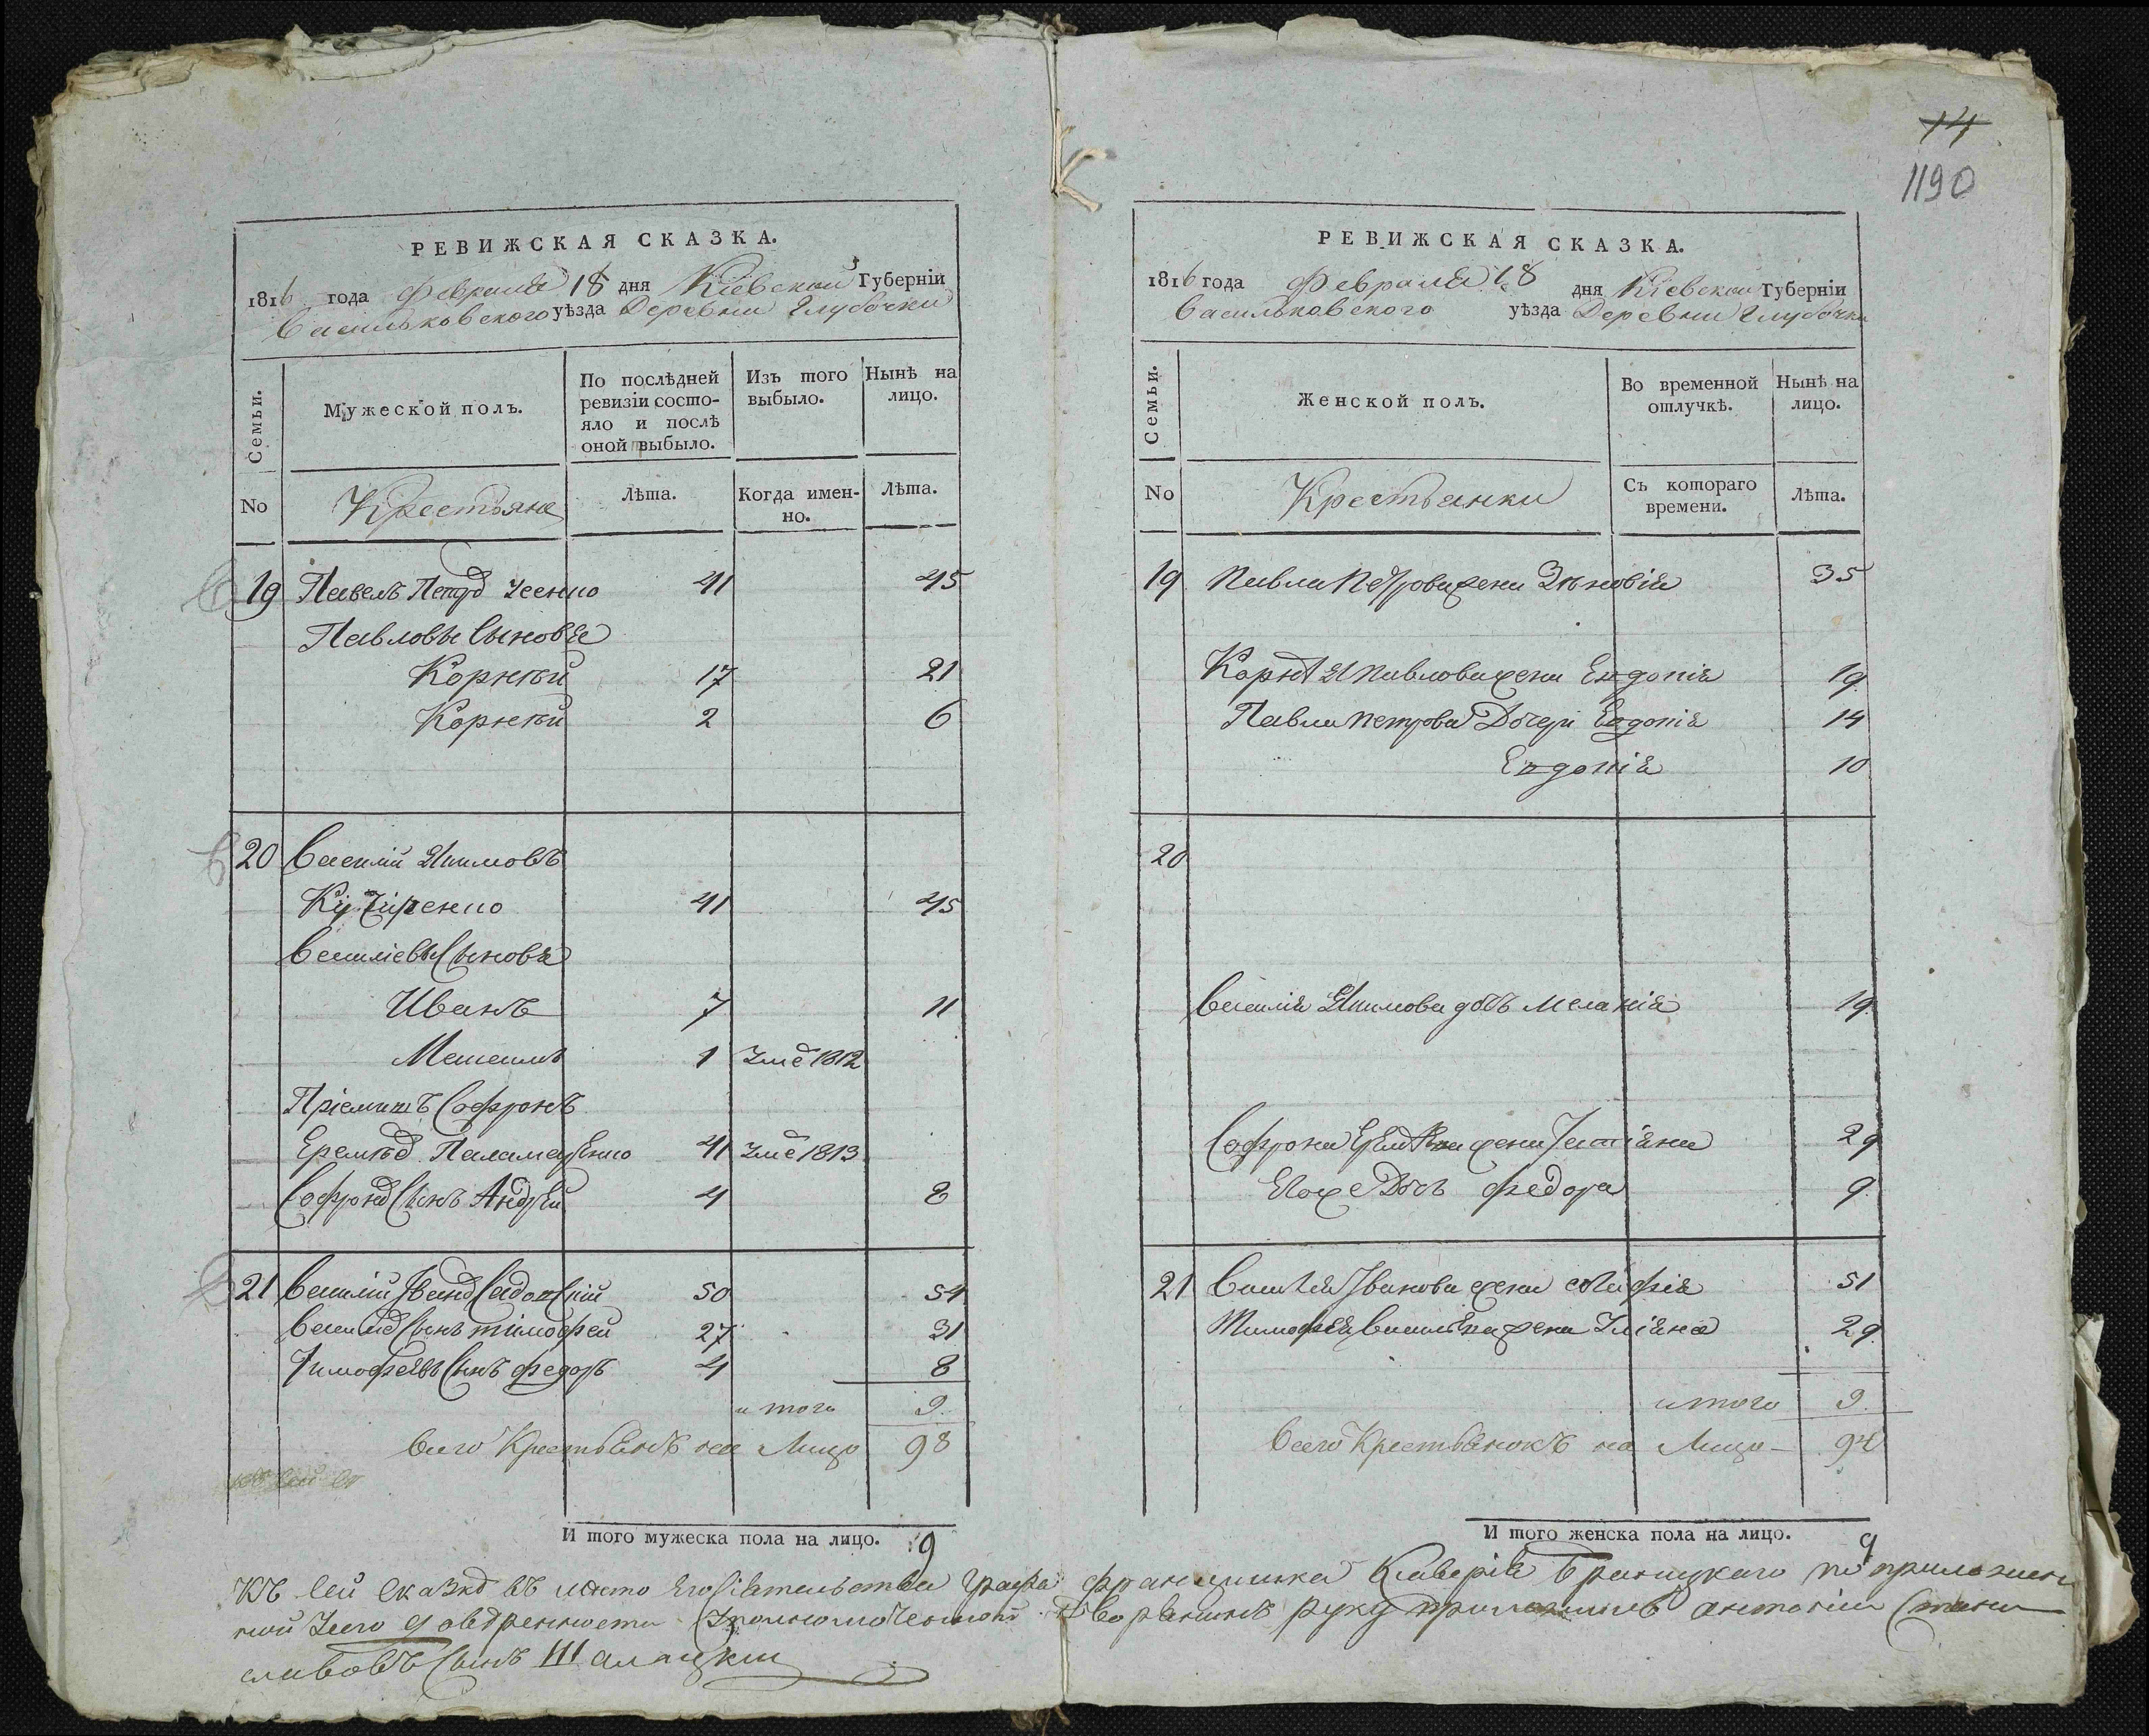 14
1190
РЕВИЖСКАЯ СКАЗКА.
1816 года Февраля 18 дня Кіевской Губерніи
Васильковского уѣзда Деревни Глубочки
Семьи.
Мужеской полъ.
По послѣдней ревизіи состо-
яло и послѣ
оной выбыло.
Изъ того выбыло.
Нынѣ на лицо.
No
Крестьяне
Лѣта.
Когда имен-
но.
Лѣта.
19 Павелъ Петр 41 45
Павловы Сыновья
Корнѣй 17 21
Корнѣй 2 6
20 Василий Якимовъ
41 45
Василіевы Сыновья
Иванъ 7 11
1 Уме 1812
Пріемишъ Софронъ
41 Уме 1813
Софрон Сынъ Андрей 4 8
21 Василій Иван 50 54
Васил Сынъ тимофей 27 31
Тимофеевъ Сынъ федоръ 4 8
итого 9
всего Крестьянъ на Лицо 98
И того мужеска пола на лицо. 9
РЕВИЖСКАЯ СКАЗКА.
1816 года Февраля 18 дня Кіевской Губерніи
Васильковского уѣзда Деревни Глубочки
Семьи.
Женской полъ.
Во временной отлучкѣ.
Нынѣ на лицо.
No
Крестьянки
Съ котораго времени.
Лѣта.
19 Павла Петрова жена Зѣновія 35
Корнѣя Павлова жена Евдокія 19
Павла петрова Дочери Евдокія 14
Евдокія 10
20
Василія Якимова дочь Меланія 19
Софрона жена Татіана 29
Егоже Дочь федора 9
21 Василія Иванова жена 51
Тимофея жена Уліяна 29
итого 9.
всего Крестьянокъ на Лицо 94
И того женска пола на лицо. 9
Къ сей сказк въ место его Сіятельства Графа Францишка Ксаверія Браницкаго по приложен
ной дворянинъ руку приложилъ антоній Стани
славовъ Сынъ